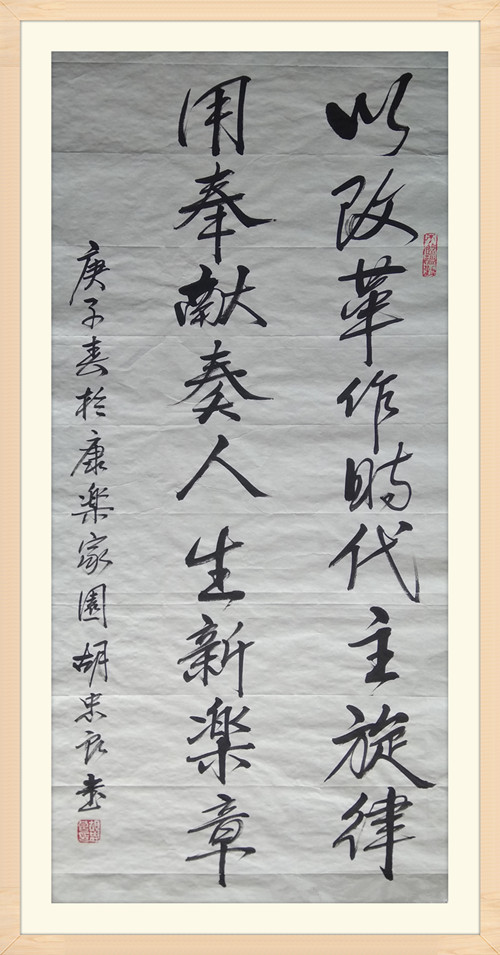 以改革作时代主旋律
用奉献奏人生新樂章
庚子春於康樂家園胡忠